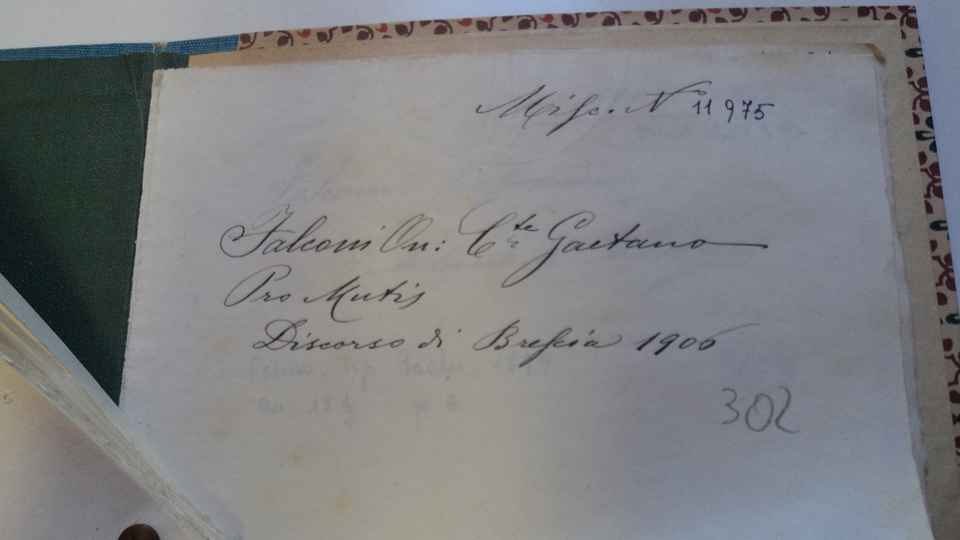 Misc. N° 11975
Falconi On: Cte Gaetano
Pro Mutis
Discorso di Brescia 1906
302